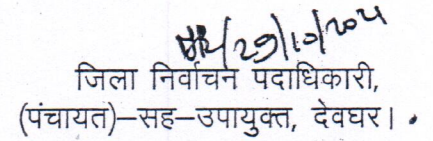 29/10/2021
जिला निर्वाचन पदाधिकारी,
(पंचायत)–सह–उपायुक्त, देवघर।